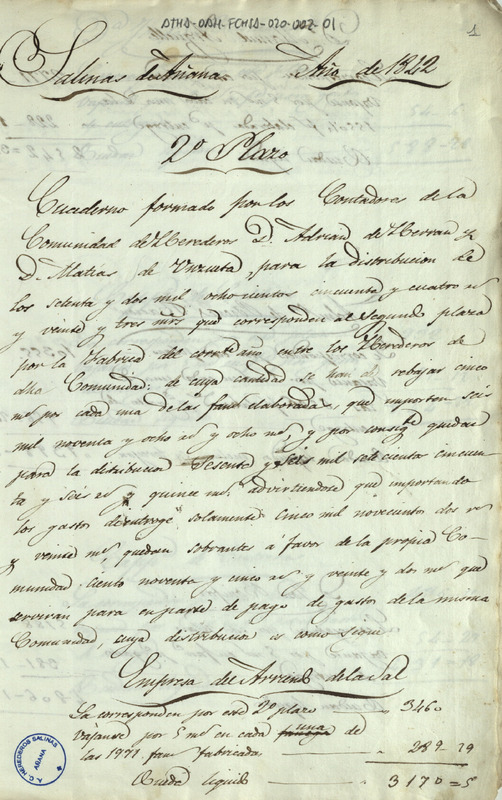 ATHA-DAH-FCHSA-020-002-01
1
Salinas de Añana Año de 1842
2º Plazo
Cuaderno formado por los Contadores de la
Comunidad de Herederos D. Adrian de Herran y
D. Matias de Unzueta, para la distribucion de
los setenta y dos mil ochocientos cincuenta y cuatro rs
y veinte y tres mrs que corresponden al segundo plazo
por la Fabrica del corrte año entre los Herederos de
dha Comunidad: de cuya cantidad se han de rebajar cinco
ms por cada una de las fans elaboradas, que importan seis
mil noventa y ocho rs y ocho ms, y por consigte quedan
para la distribucion sesenta y seis mil setecientos cincuen
ta y seis rs y quince ms advirtiendose que importando
los gastos de entroge solamente cinco mil novecientos dos rs
y veinte ms quedan sobrantes a favor de la propia Co-
munidad ciento noventa y cinco rs y veinte y dos ms que
servirán para en parte de pago de gastos de la misma
Comunidad cuya distribucion es como sigue
Empresa del Arriendo de la Sal
La corresponden por este 2º plazo 3460
Vajanse por 5 ms en cada una de
las 1971 fans fabricadas 289 29
Quéda liquido 3170=5
A.C. HEREDEROS SALINAS
AÑANA